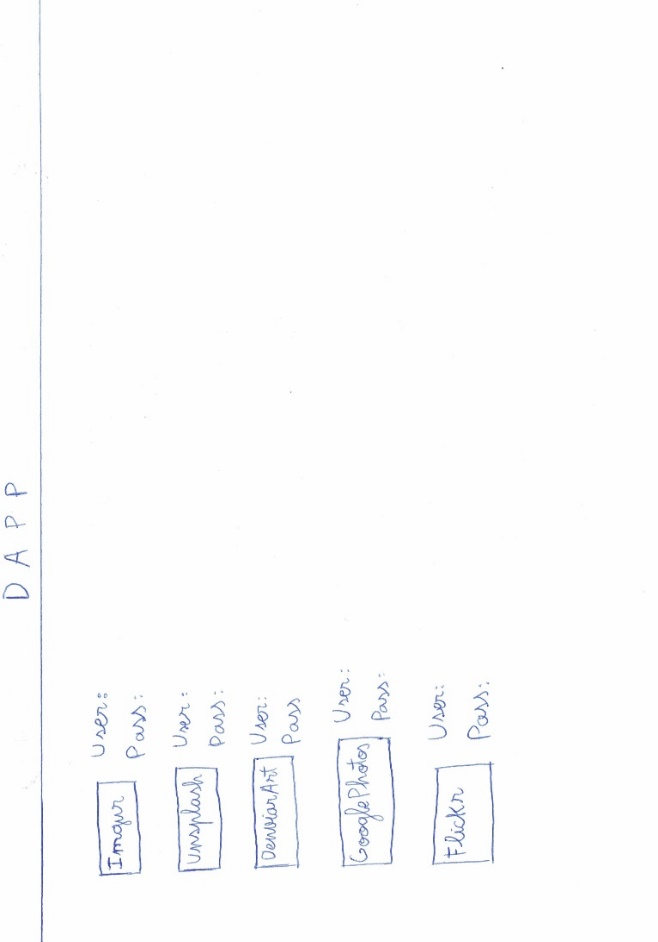 D A P P
Imgur User:
Pass:
Unsplash User:
Pass:
DenviarArt User:
Pass
GooglePhotos User:
Pass:
Flickr User:
Pass: